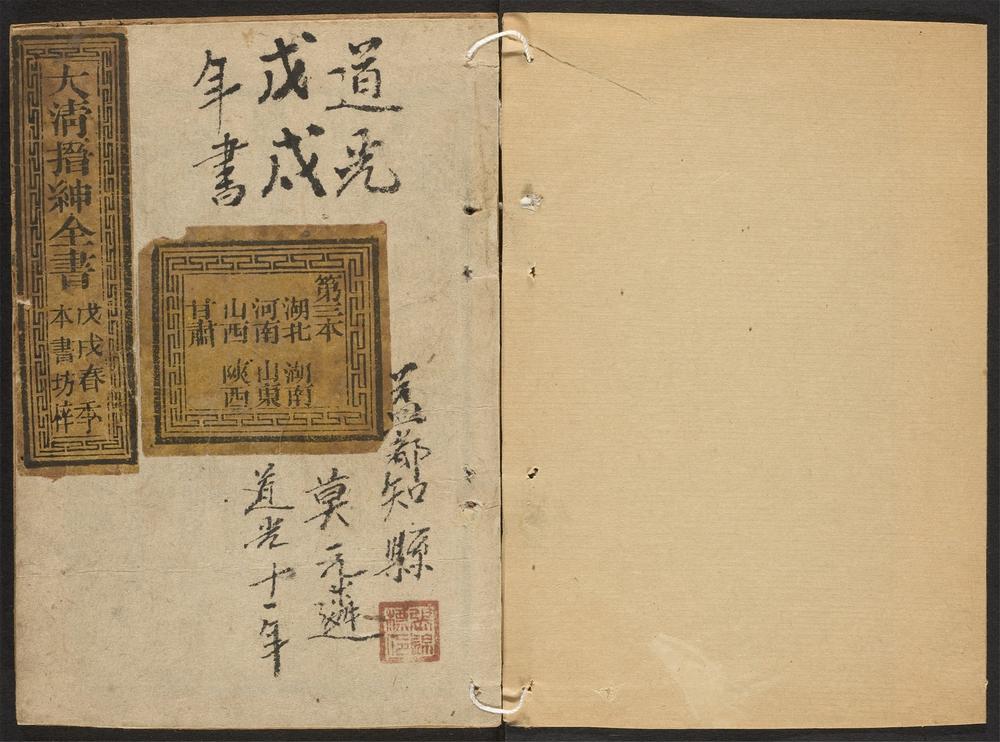 道光
戊戌
年書
第三本
湖北 湖南
河南 山東
山西 陝西
甘肅
益都知縣
莫元遴
道光十一年
大清搢紳全書
戊戌春季
本書坊梓